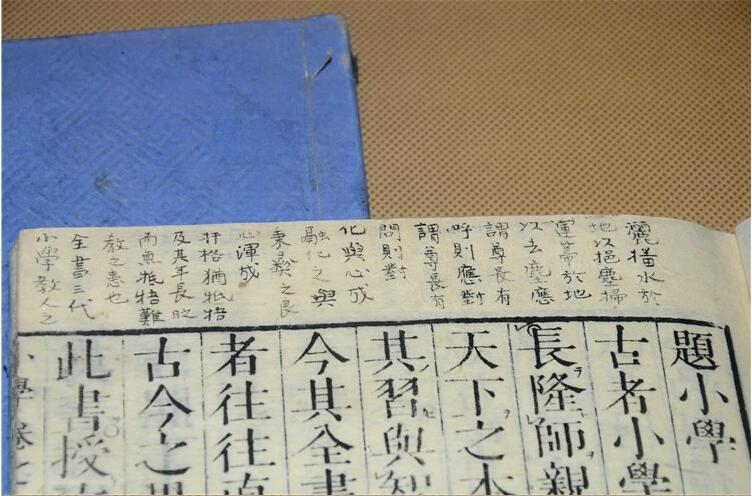 灑播水於
地以挹塵掃
運帚於地
以去塵應
謂尊長有
呼則應對
謂尊長有
問則對
化與心成
融化之與
秉彜之良
心渾成
扞格猶牴牾
及其年長
而無牴牾難
教之患也
全書三代
小學教人之
題小學
古者小學
長隆師親
天下之本
其習與智
今其全書
者往往直
古今之異
此書授
小學卷之